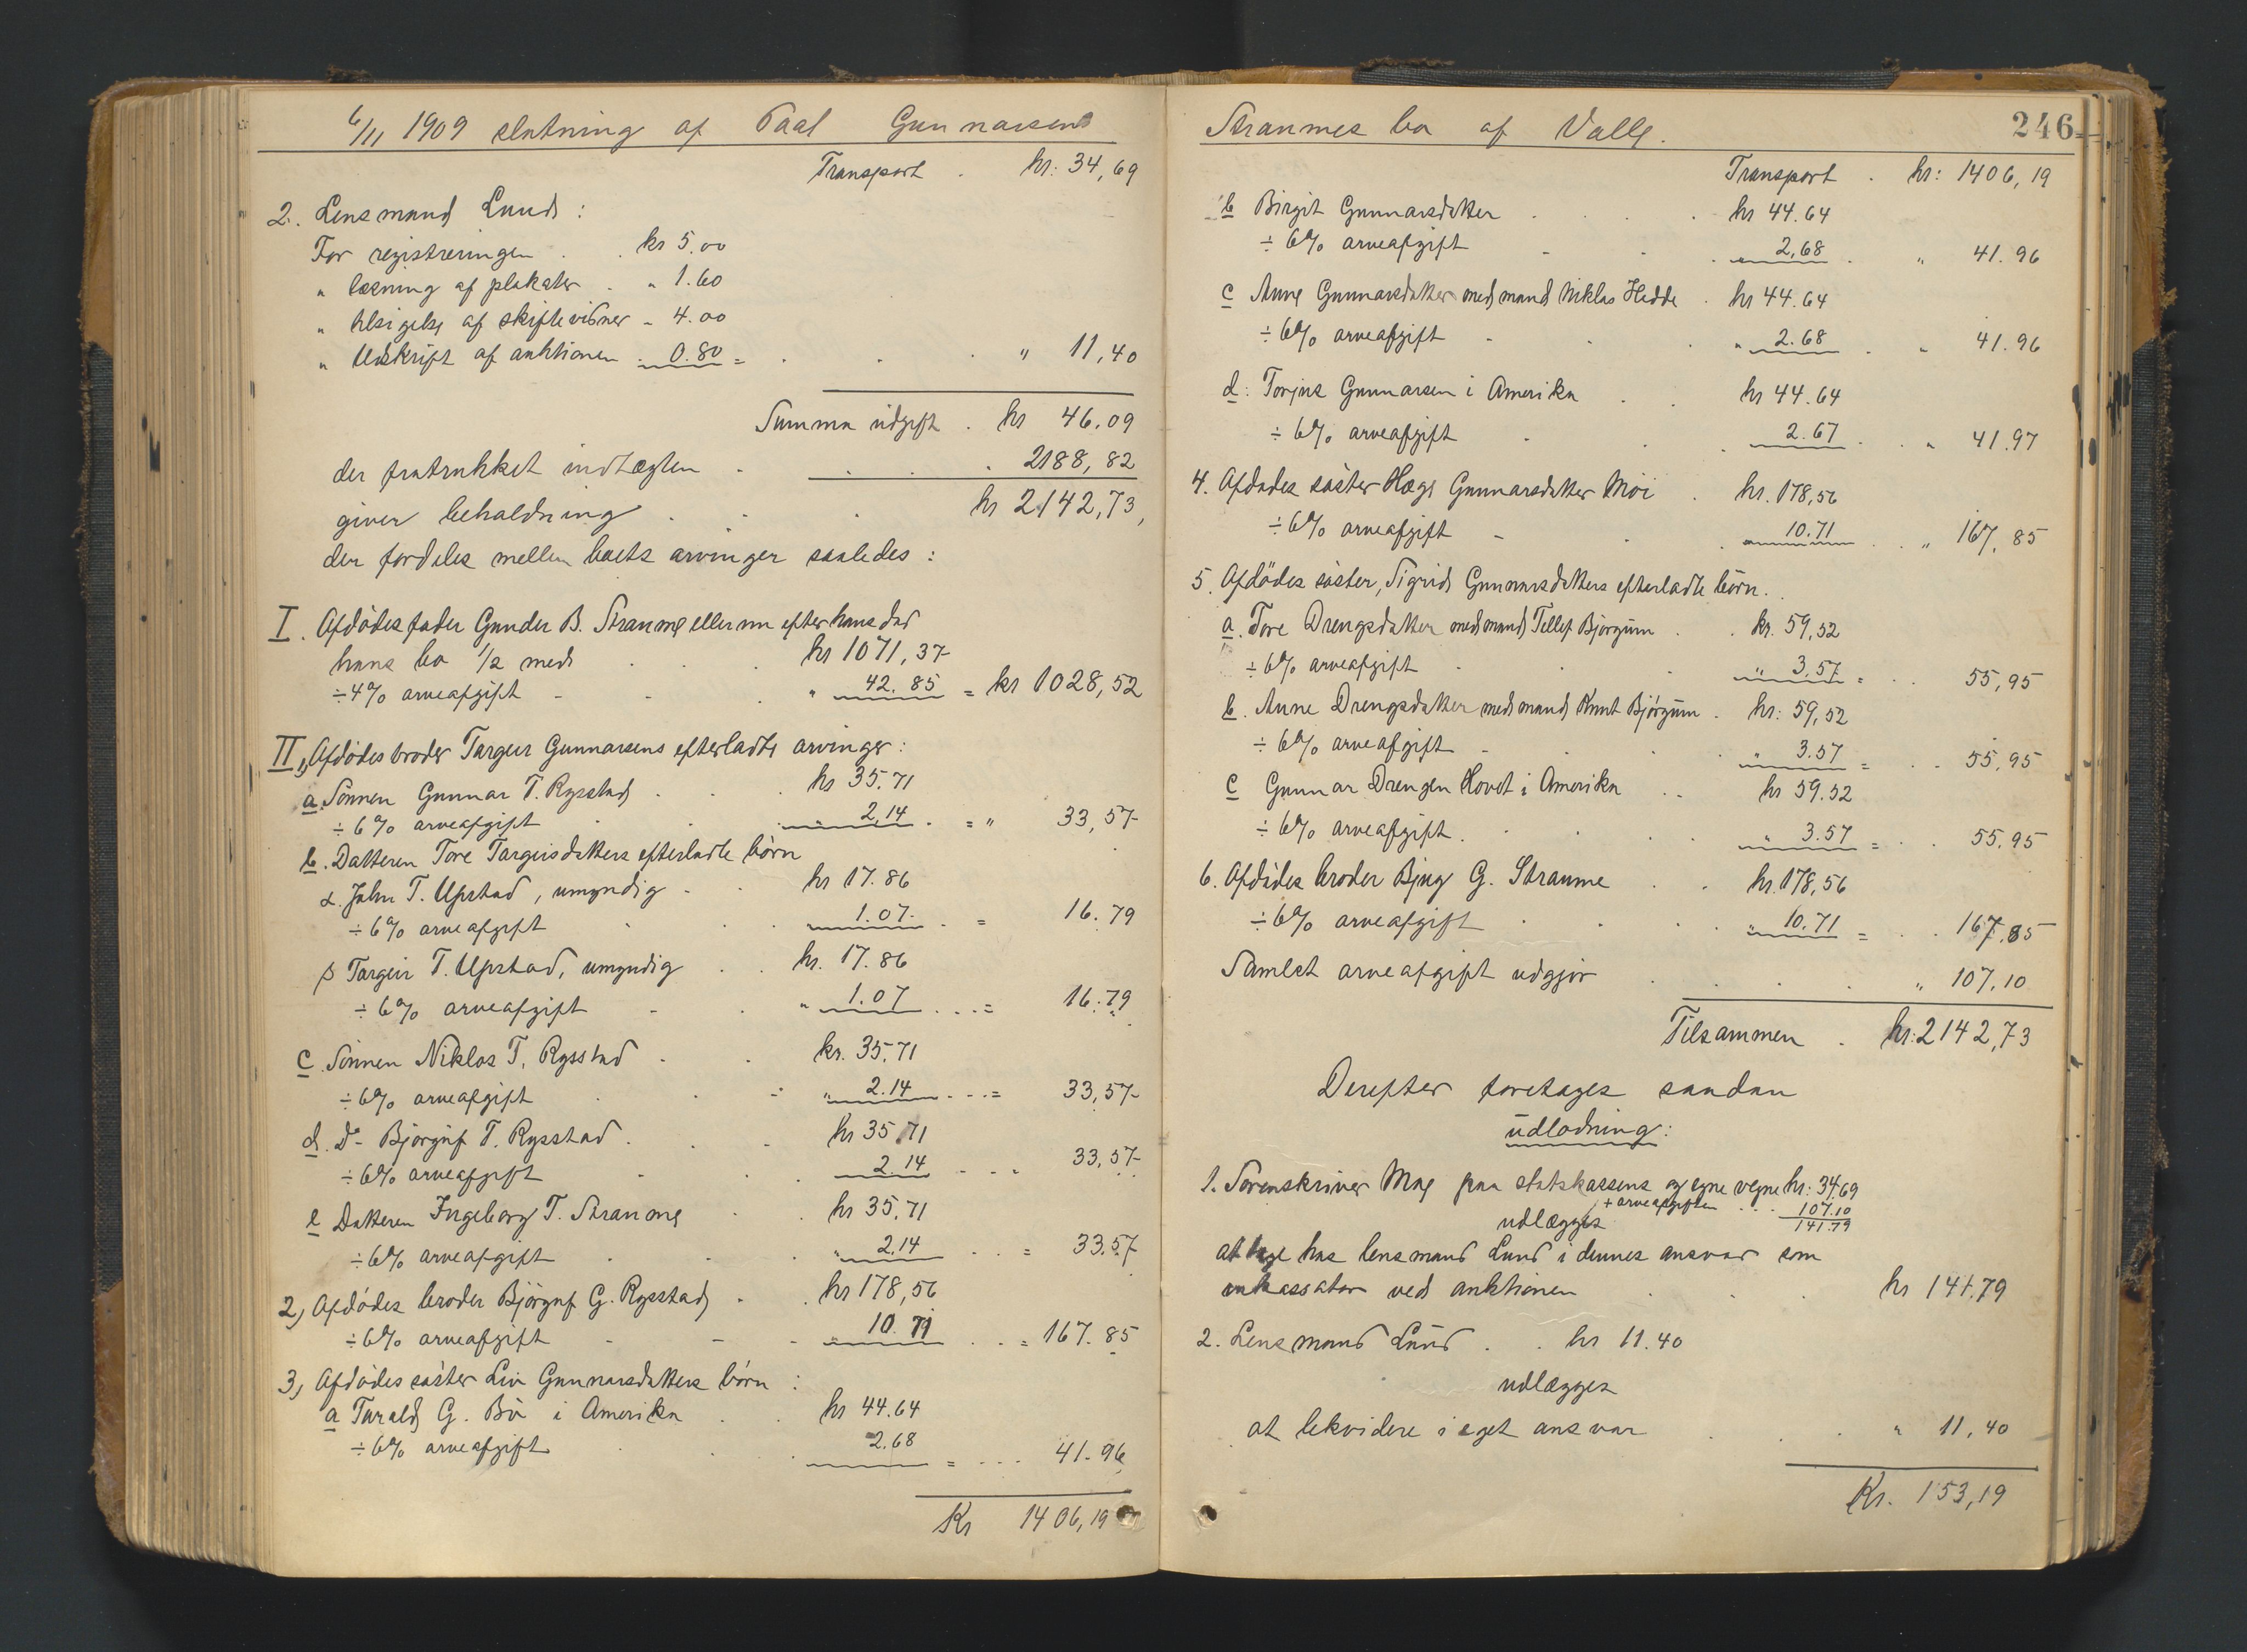 6/11 1909 slutning af Paal Gunnarsens
Transport . kr: 34,69
2. Lensmand Lund:
For registreringen . . kr 5.00
„ læsning af plakater . „ 1.60
„ tilsigelse af skiftevidner „ 4.00
„ Udskrift af auktionen . 0.80 = . . . „ 11,40
Summa udgift . kr 46.09
der fratrukket indtægten . . . . 2188,82
giver beholdning . . . kr 2142,73,
der fordeles mellem boets arvinger saaledes:
I. Afdødes fader Gunder B. Straume eller nu efter hans død
hans bo 1/2 med . . . kr 1071,37
÷ 4% arveafgift - - „ 42.85 = kr 1028,52
II 1, Afdødes broder Targeir Gunnarsens efterladte arvinger:
a. Sønnen Gunnar T. Rysstad . . . kr 35,71
÷ 6% arveafgift . . . „ 2,14 . = „ 33,57
b. Datteren Tore Targeirsdatters efterladte børn
α. John T. Upstad, umyndig - . kr 17.86
÷ 6% arveafgift . . . 1.07. . = 16.79
β Targeir T. Upstad, umyndig . . kr. 17.86
÷ 6% arveafgift - . „ 1.07 . . . = 16.79
c. Sønnen Niklos T. Rysstad . . kr. 35,71
÷ 6% arveafgift . . - „ 2.14 . . . = 33,57
d. Do- Bjørguf T. Rysstad . . . kr 35,71
÷ 6% arveafgift - . 2.14 . . . 33,57
e Datteren Ingeborg T. Straume . . kr 35,71
÷ 6% arveafgift . . „ 2,14 . . = 33.57
2, Afdødes broder Bjørguf G. Rysstad . . kr 178,56
÷ 6% arveafgift - - - „ 10.71 . . = 167.85
3, Afdødes søster Liv Gunnarsdatters børn :
a Tarald G. Bø i Amerika . . kr 44.64
÷ 6% arveafgift . . . 2.68 = . . . 41.96
Kr 1406,19
Straumes bo af Valle. 246
Transport . kr: 1406,19
b Birgit Gunnarsdatter . . . . kr 44.64
÷ 6% arveafgift - - . „ 2,68 . „ 41.96
c Anne Gunnarsdatter med mand Niklas Hedde . kr 44.64
÷ 6% arveafgift - . . „ 2.68 . „ 41.96
d: Torjus Gunnarsen i Amerika . . kr 44.64
÷ 6% arveafgift - . 2.67 . . „ 41.97
4. Afdødes søster Hæge Gunnarsdatter Moi . kr. 178,56
÷ 6% arveafgift - . . 10.71 . . „ 167,85
5. Afdødes søster, Sigrid Gunnarsdatters efterladte børn. .
a. Tore Drengsdatter med mand Tellef Bjørgum . . kr. 59,52
÷ 6% arveafgift . . „ 3,57 = . . 55,95
b. Anne Drengsdatter med mand Knut Bjørgum . kr: 59,52
÷ 6% arveafgift - . . „ 3.57 = . . 55,95
c Gunnar Drengsen Hovet i Amerika . . kr 59.52
÷ 6% arveafgift . . . . „ 3.57 = . . 55.95
6. Afdødes broder Bjug G. Straume . . kr. 178,56
÷ 6% arveafgift . . . . „ 10.71 = . . 167.85
Samlet arveafgift udgjør . . . . „ 107,10
Tilsammen . kr: 2142,73
Derefter foretages saadan
udlodning:
1. Sorenskriver Moe paa statskassens og egne vegne kr: 34.69
+ arveafgiften . . . 107.10
udlægges 141.79
at tage hos lensmand Lund i dennes ansvar som
inkassator ved auktionen . . . kr 141.79
2. Lensmand Lund . . kr 11.40
udlægges
at likvidere i eget ansvar . . . „ 11,40
Kr. 153,19